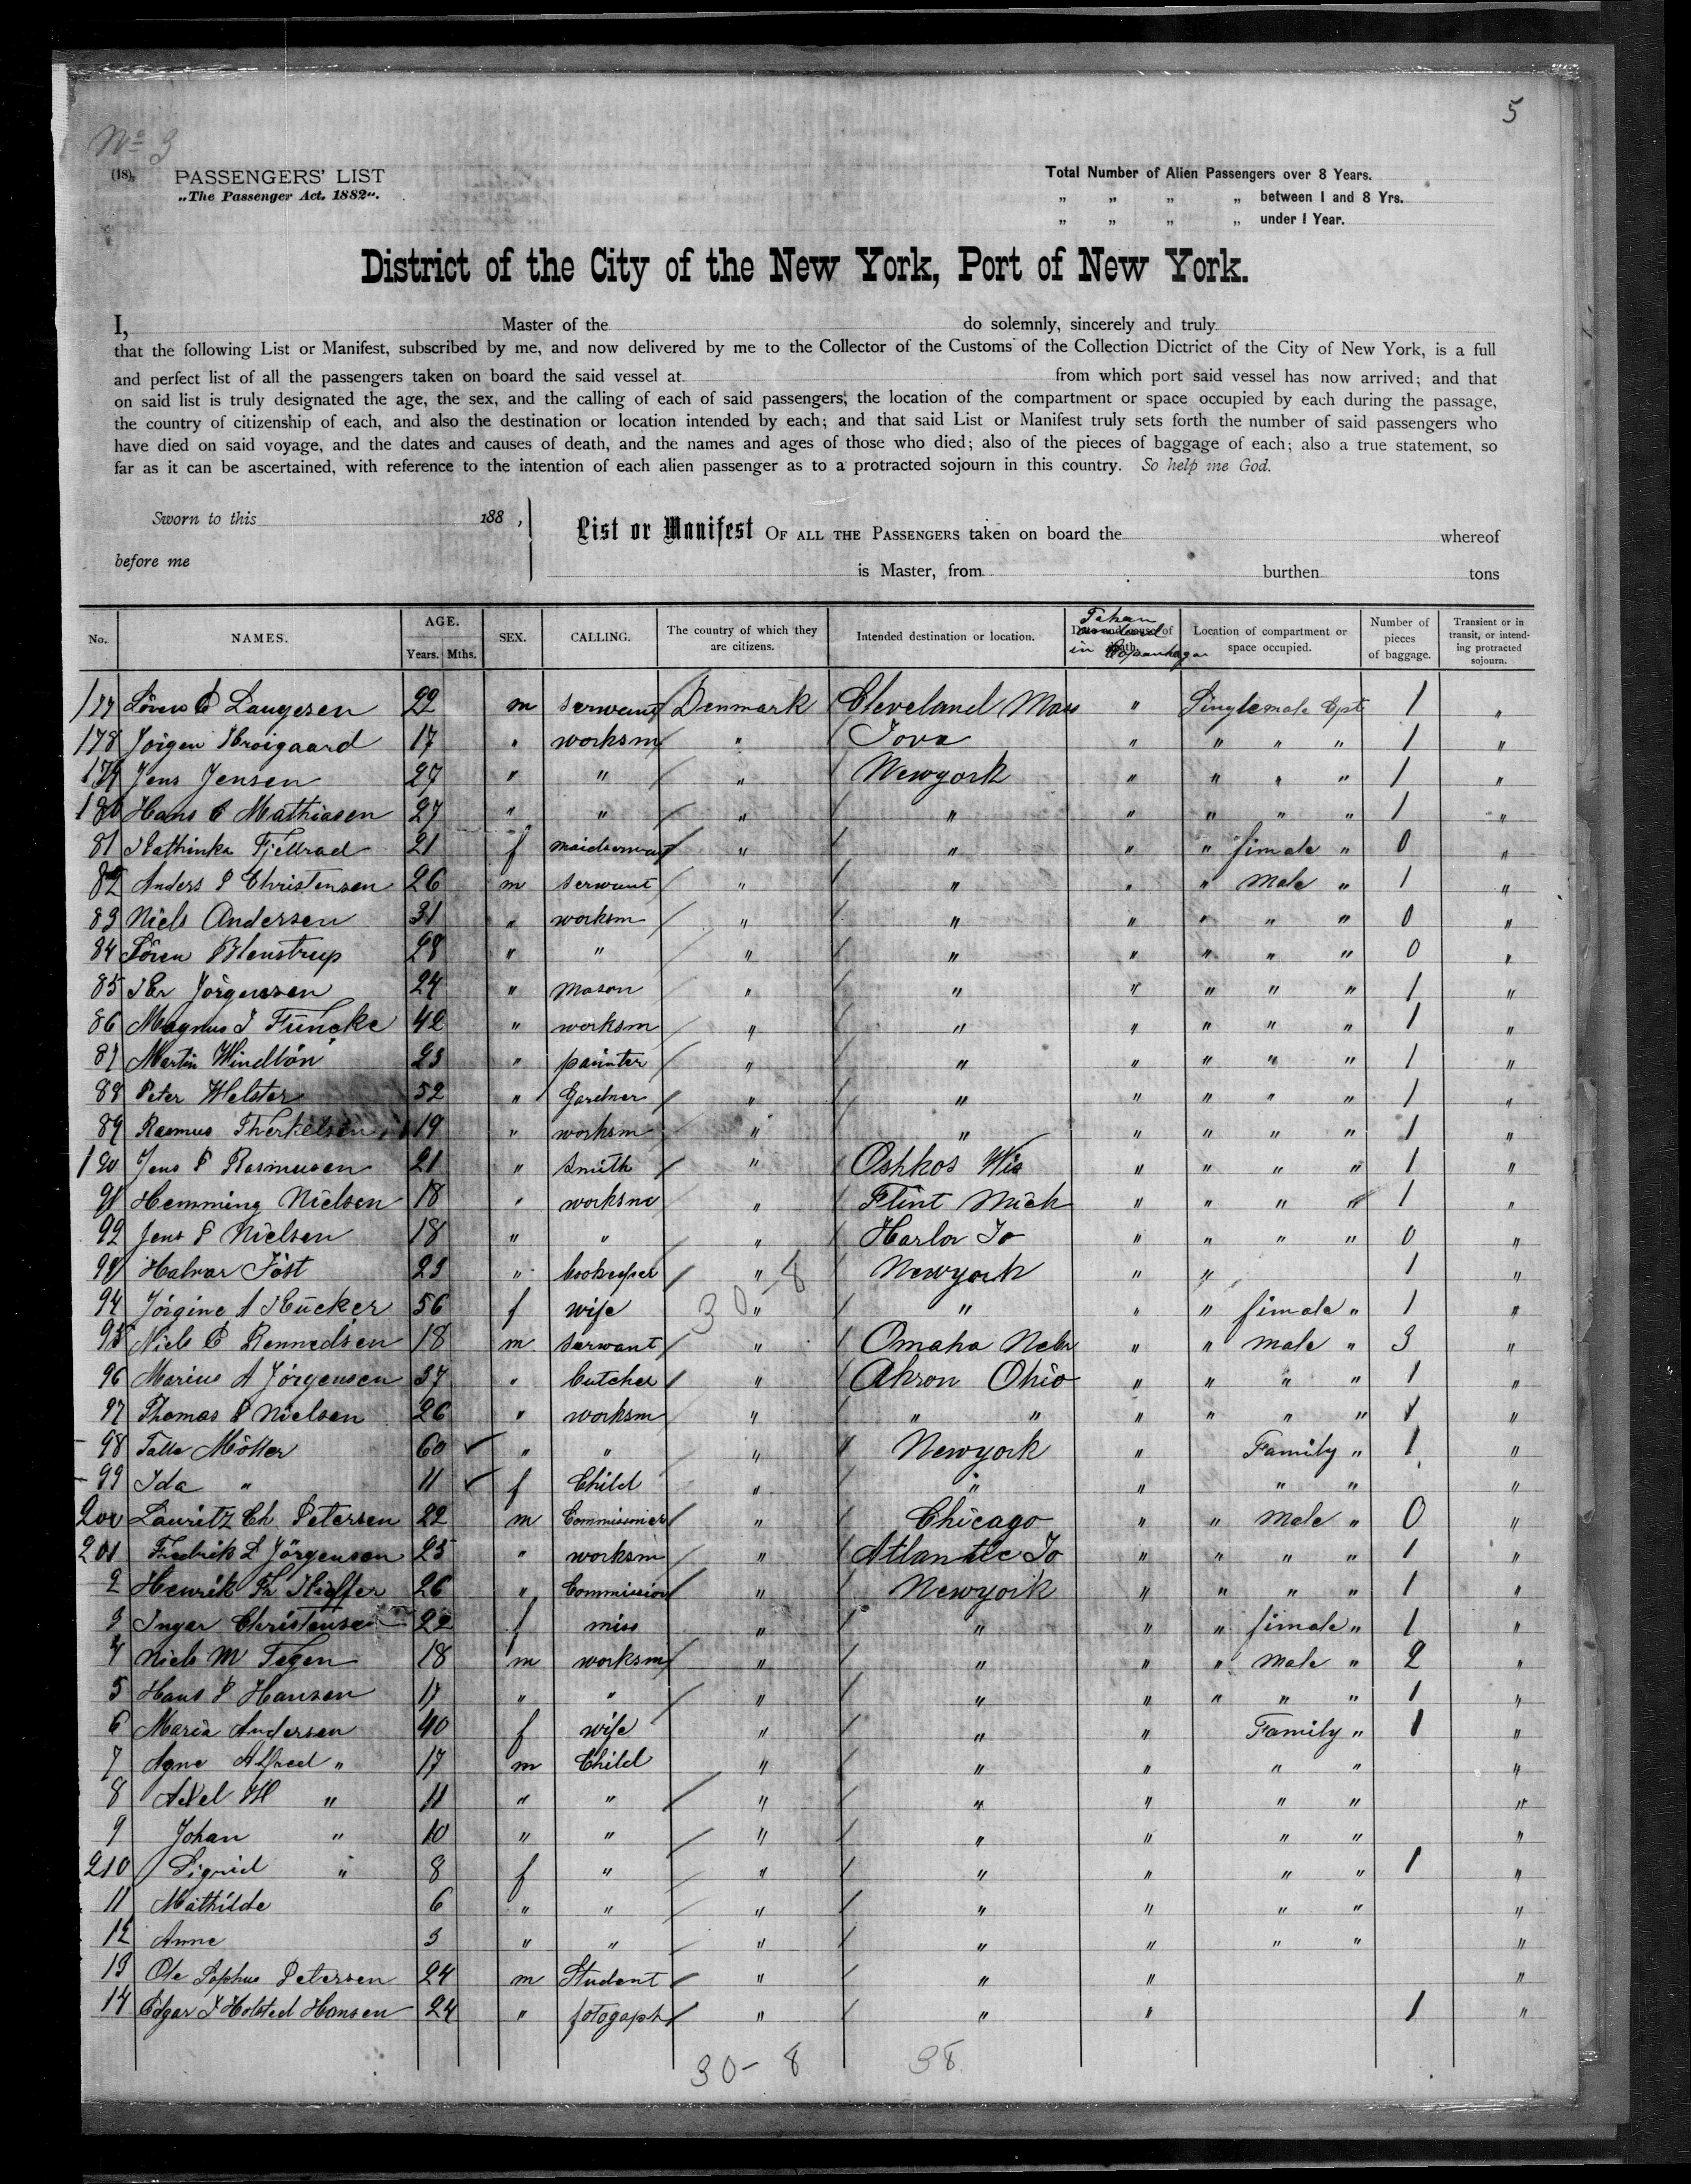 5
No 3
(18). PASSENGERS' LIST
„The Passenger Act. 1882“.
Total Number of Alien Passengers over 8 Years.
„ „ „ „ between 1 and 8 Yrs.
„ „ „ „ under 1 Year.
District of the City of the New York, Port of New York.
I, Master of the do solemnly, sincerely and truly
that the following List or Manifest, subscribed by me, and now delivered by me to the Collector of the Customs of the Collection Dictrict of the City of New York, is a full
and perfect list of all the passengers taken on board the said vessel at from which port said vessel has now arrived; and that
on said list is truly designated the age, the sex, and the calling of each of said passengers, the location of the compartment or space occupied by each during the passage,
the country of citizenship of each, and also the destination or location intended by each; and that said List or Manifest truly sets forth the number of said passengers who
have died on said voyage, and the dates and causes of death, and the names and ages of those who died; also of the pieces of baggage of each; also a true statement, so
far as it can be ascertained, with reference to the intention of each alien passenger as to a protracted sojourn in this country. So help me God.
Sworn to this 188 ,
before me
List or Manifest OF ALL THE PASSENGERS taken on board the whereof
is Master, from burthen tons
No. NAMES. AGE. Years. Mths. SEX. CALLING. The country of which they are citizens. Intended destination or location. Taken in Copenhagen Location of compartment or space occupied. Number of pieces of baggage. Transient or in transit, or intending protracted sojourn.
177 C Laugesen 22 m servant Denmark Cleveland Mass " Singlemale Cpt 1 "
178 Jörgen Kroigaard 17 " worksm " Iova " " " " 1 "
179 Jens Jensen 27 " " " Newyork " " " " 1 "
180 Hans C Mathiasen 27 " " " " " " " " 1 "
81 Kathinka Fjellrad 21 f maidservant " " " " fimale " 0 "
82 Anders P Christensen 26 m servant " " " " male " 1 "
83 Niels Andersen 31 " worksm " " " " " " 0 "
84 Sören Blenstrup 28 " " " " " " " " 0 "
85 Jörgensen 24 " mason " " " " " " 1 "
86 Magnus J Füncke 42 " worksm " " " " " " 1 "
87 Martin Windlön 23 " painter " " " " " " 1 "
88 Peter Helster 52 " Gardner " " " " " " 1 "
89 Rasmus Therkelsen 19 " worksm " " " " " " 1 "
190 Jens P Rasmussen 21 " Smith " Oshkos Wis " " " " 1 "
91 Hemming Nielsen 18 " worksm " Flint Mich " " " " 1 "
92 Jens P Nielsen 18 " " " Harlov Io " " " " 0 "
93 Halvar Jöst 23 " bookeeper " Newyork " " 1 "
30-8
94 Jörgine A Kücker 56 f wife " " " " fimale " 1 "
95 Niels C Bennedsen 18 m servant " Omaha Nebr " " male " 3 "
96 Marius A Jörgensen 37 " butcher " Akron Ohio " " " " 1 "
97 Thomas P Nielsen 26 " worksm " " " " " " " 1 "
98 Möller 60 " " " Newyork " Family " 1 "
99 Ida " 11 f Child " " " " " "
200 Lauritz Ch Petersen 22 m Commissioner " Chicago " " male " 0 "
201 Fredrik L Jörgensen 25 " worksm " Atlantic Io " " " " 1 "
2 Henrik Th Kieffer 26 " Commission " Newyork " " " " 1 "
3 Inger Christensen 22 f miss " " " " fimale " 1 "
4 Niels M Fegen 18 m worksm " " " " male " 2 "
5 Hans P Hansen 17 " " " " " " " " 1 "
6 Maria Andersen 40 f wife " " " Family " 1 "
7 Agne Alfred " 17 m Child " " " " " "
8 Axel H " 11 " " " " " " " "
9 Johan " 10 " " " " " " " "
210 Sigrid " 8 f " " " " " " 1 "
11 Mathilde 6 " " " " " " " "
12 Anne 3 " " " " " " " "
13 Ole Sophus Petersen 24 m Student " " " "
14 Edgar J Holsted Hansen 24 " fotogaph " " " 1 "
30-8 38